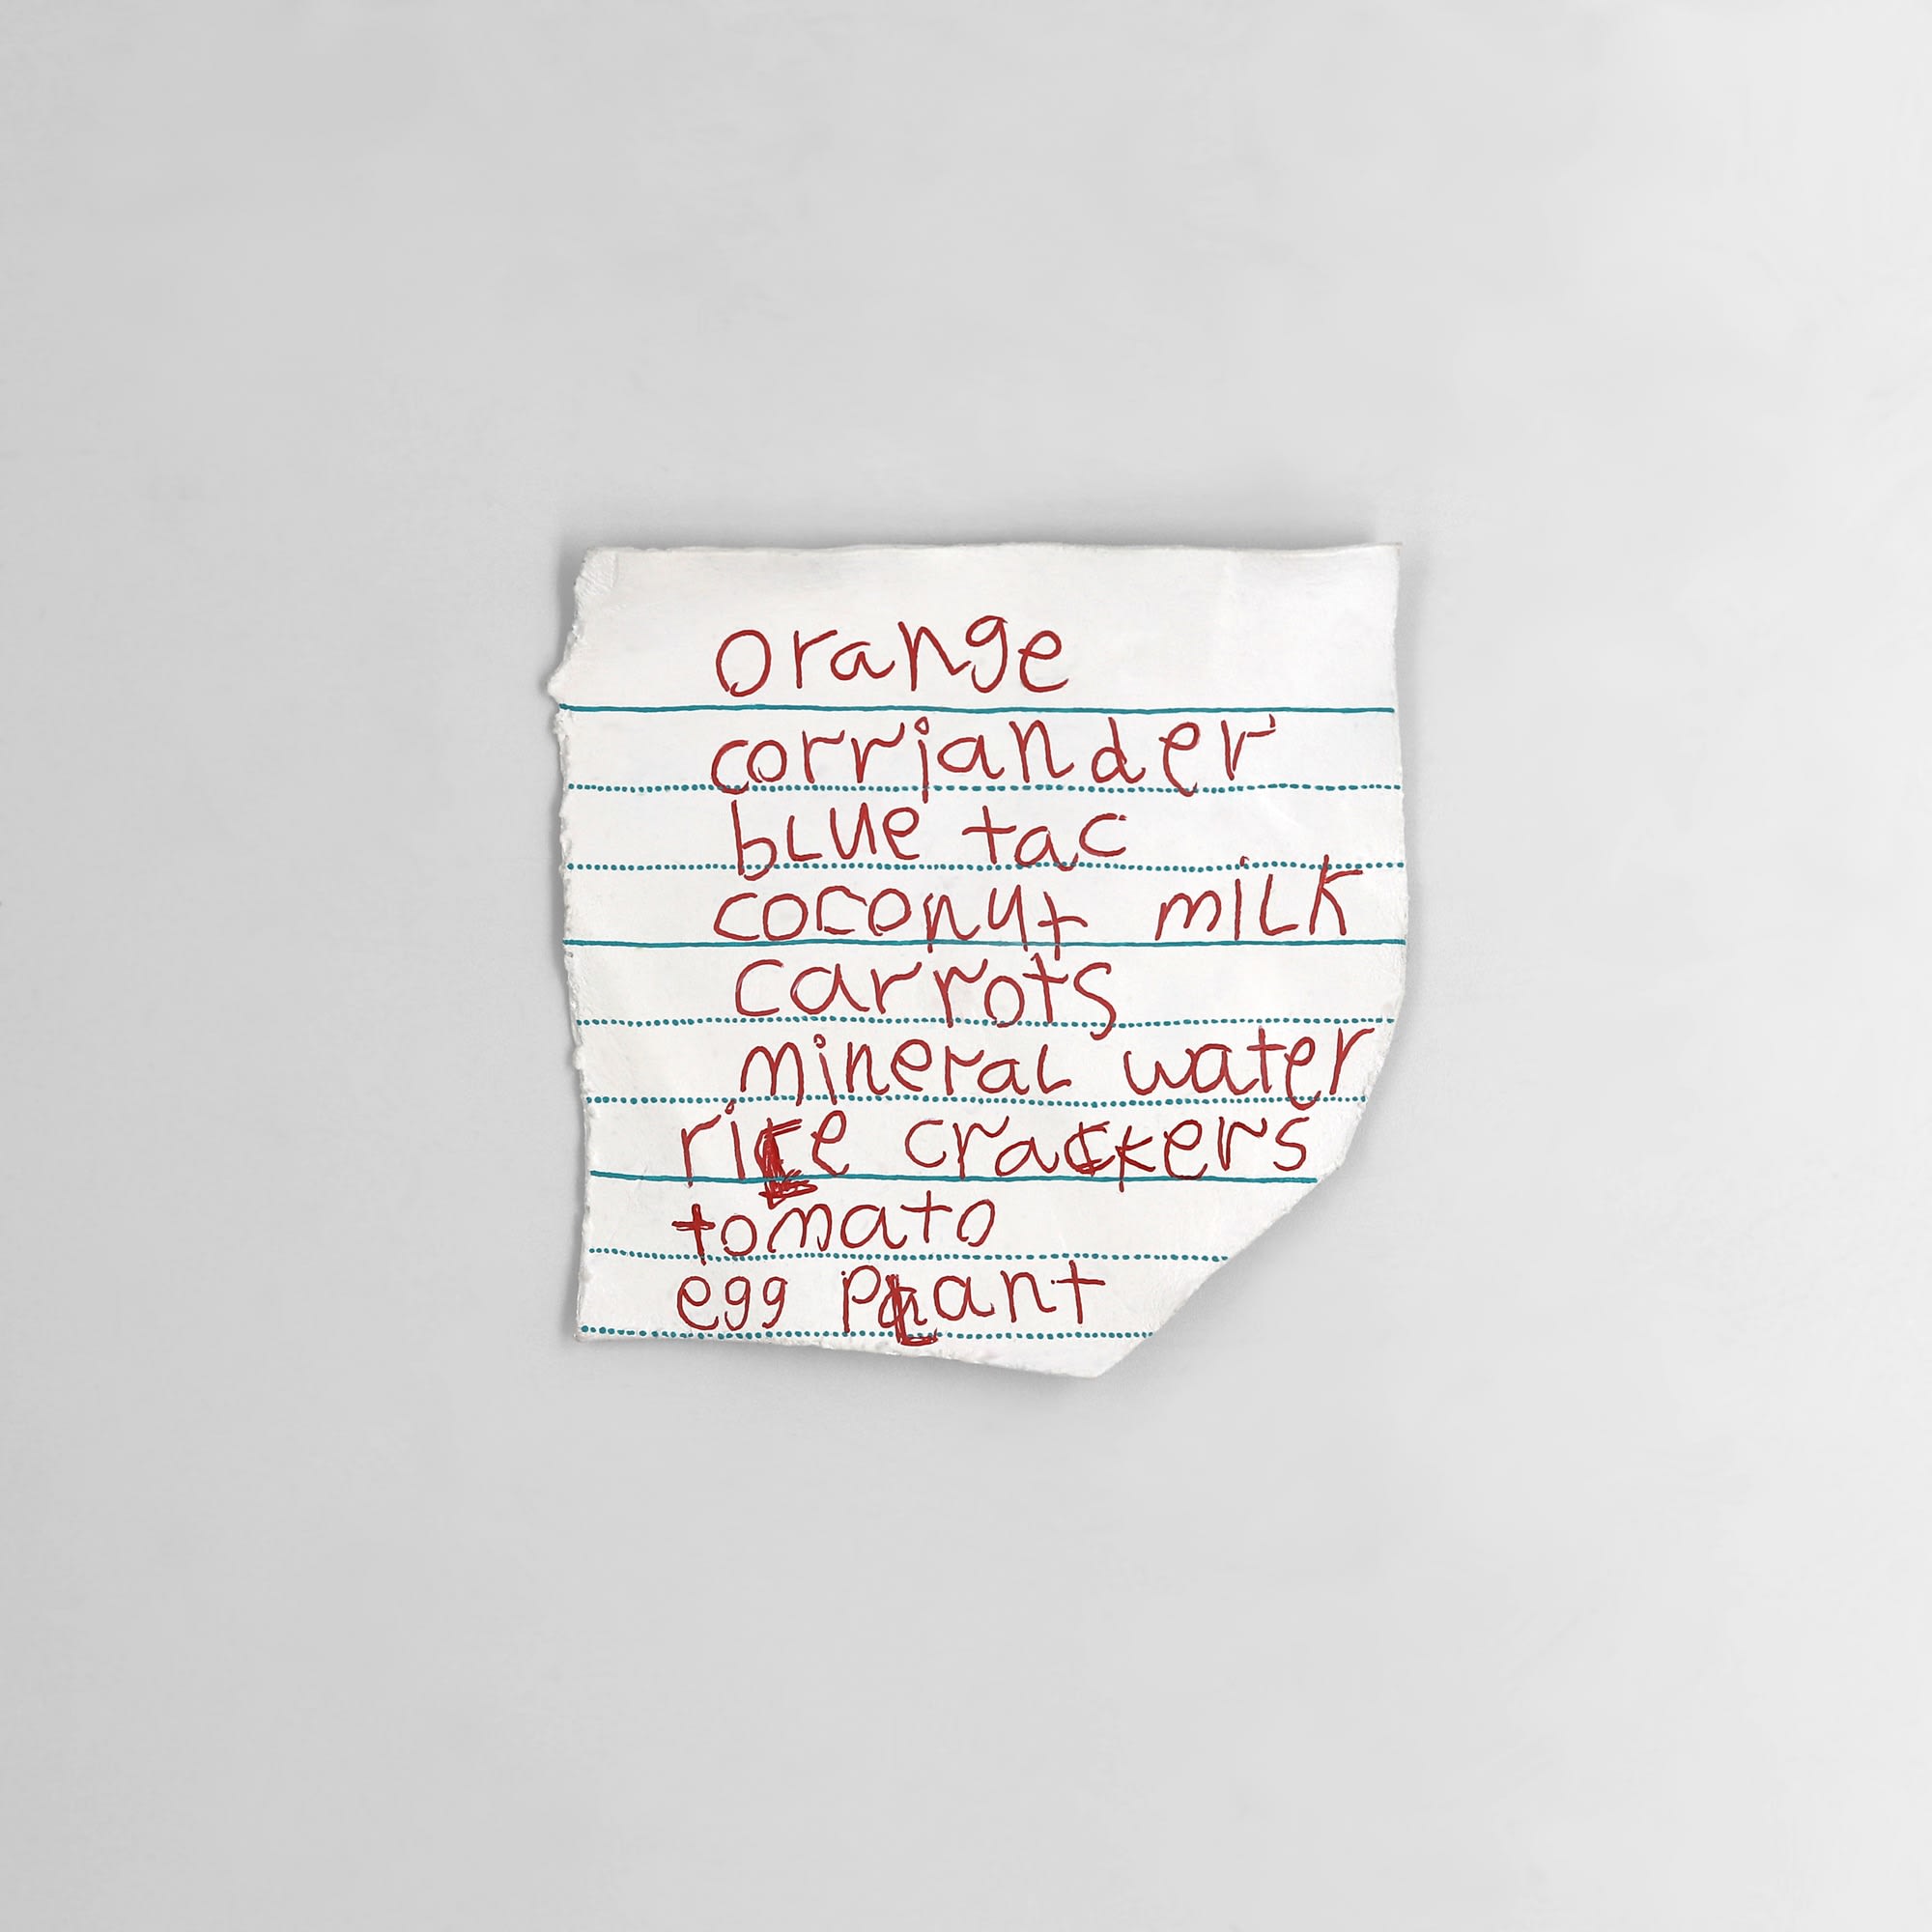 orange
corriander
blue tac
coconut milk
carrots
mineral water
rice crackers
tomato
egg plant